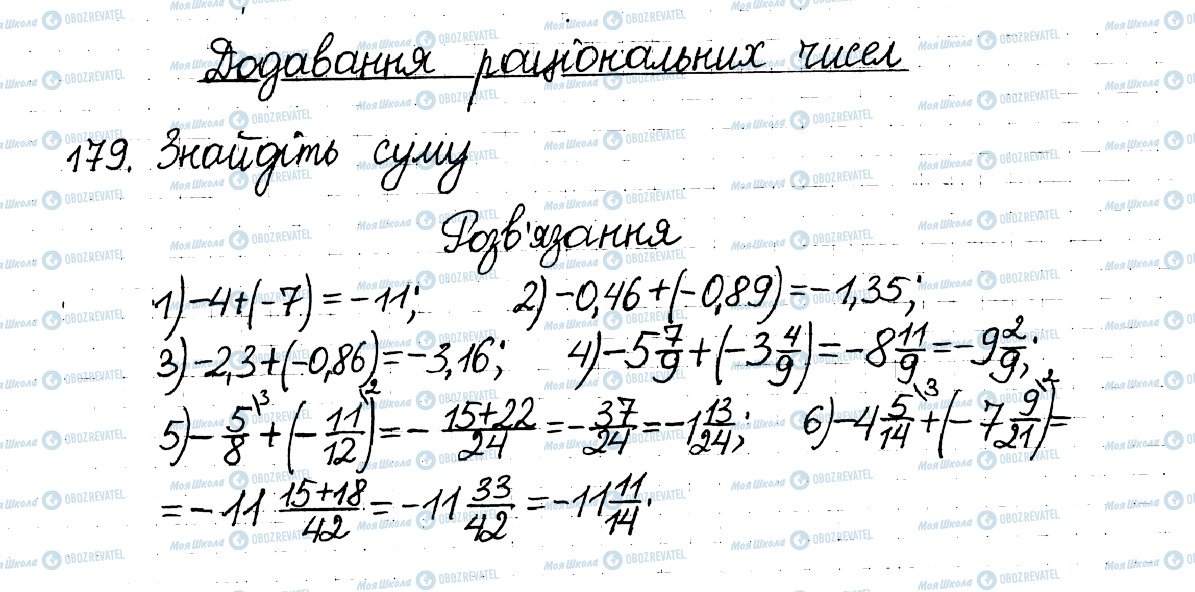 Додавання раціональних чисел
179. Знайдіть суму
Розв'язання
1) -4+(-7)=-11; 2) -0,46+(-0,89)=-1,35;
3) -2,3+(-0,86)=-3,16; 4) -5 7/9+(-3 4/9)=-8 11/9=-9 2/9;
5) -5/8\3+(-11/12\2)=-15+22/24=-37/24=-1 13/24; 6) -4 5/14\3+(-7 9/21\2)=
=-11 15+18/42=-11 33/42=-11 11/14.